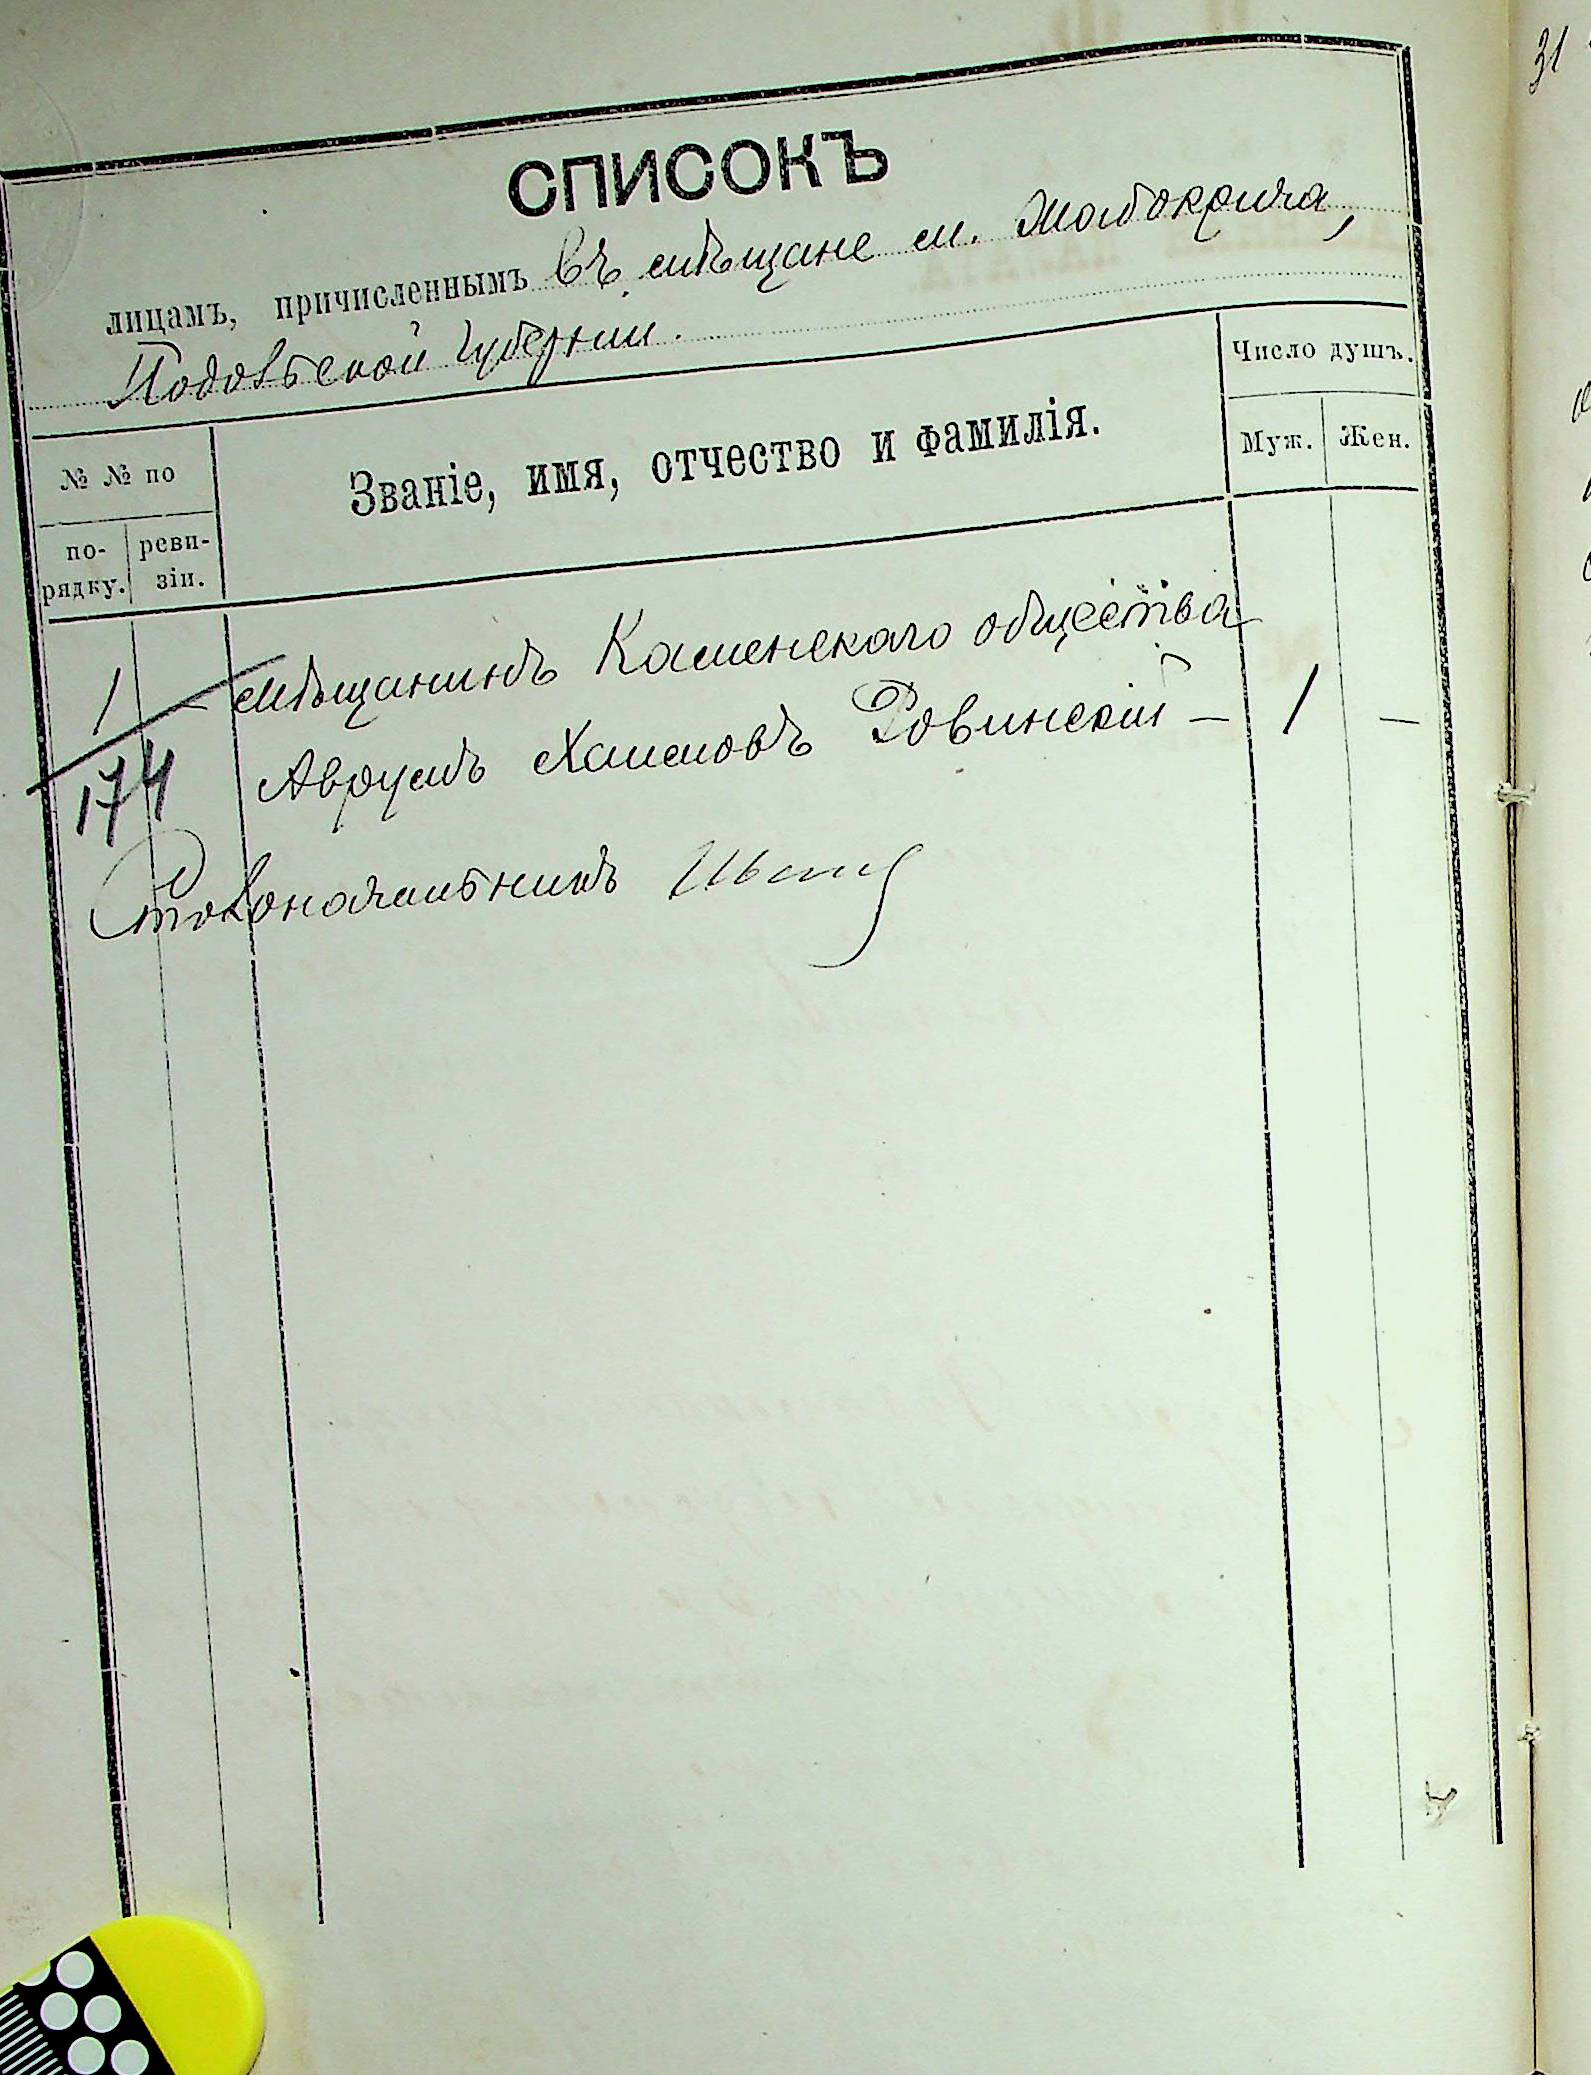 СПИСОКЪ
лицамъ, причисленнымъ въ мѣщане м. Жабокрича,
Подольской губерніи.
№ № по
по-
рядку.
реви-
зіи.
Званіе, имя, отчество и фамилія.
Число душъ.
Муж. Жен.
1 - мѣщанинъ Каменскаго общества
174 Аврумъ Хаимовъ Ровинскій - 1 -
Столоначальникъ
31